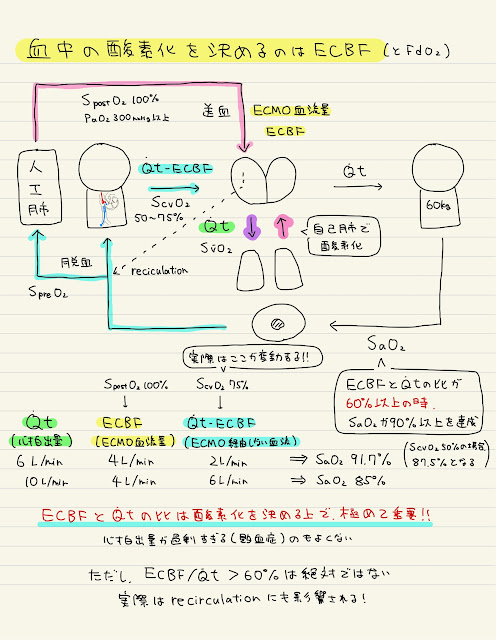 血中の酸素化を決めるのはECBF(とFdO₂)
SpostO₂ 100%
PaO₂ 300mmHg以上
送血
ECMO血流量
ECBF
人工肺
Q̇t-ECBF
ScvO₂
50〜75%
Q̇t
60kg
Q̇t
Sv̄O₂
自己肺で
酸素化
脱血
reciculation
SpreO₂
SaO₂
実際はここが変動する!!
ECBFとQ̇tの比が
60%以上の時.
SaO₂が90%以上を達成
SpostO₂ 100%
ScvO₂ 75%
Q̇t
ECBF
Q̇t-ECBF
(心拍出量)
(ECMO血流量)
(ECMO経由しない血流)
(ScvO₂ 50%の場合
87.5%となる)
6 L/min 4L/min 2L/min ⇒ SaO₂ 91.7%
10L/min 4L/min 6L/min ⇒ SaO₂ 85%
ECBFとQ̇tの比は酸素化を決める上で、極めて重要!!
心拍出量が過剰すぎる(敗血症)のもよくない
ただし、ECBF/Q̇t > 60%は絶対ではない
実際はrecirculationにも影響される!